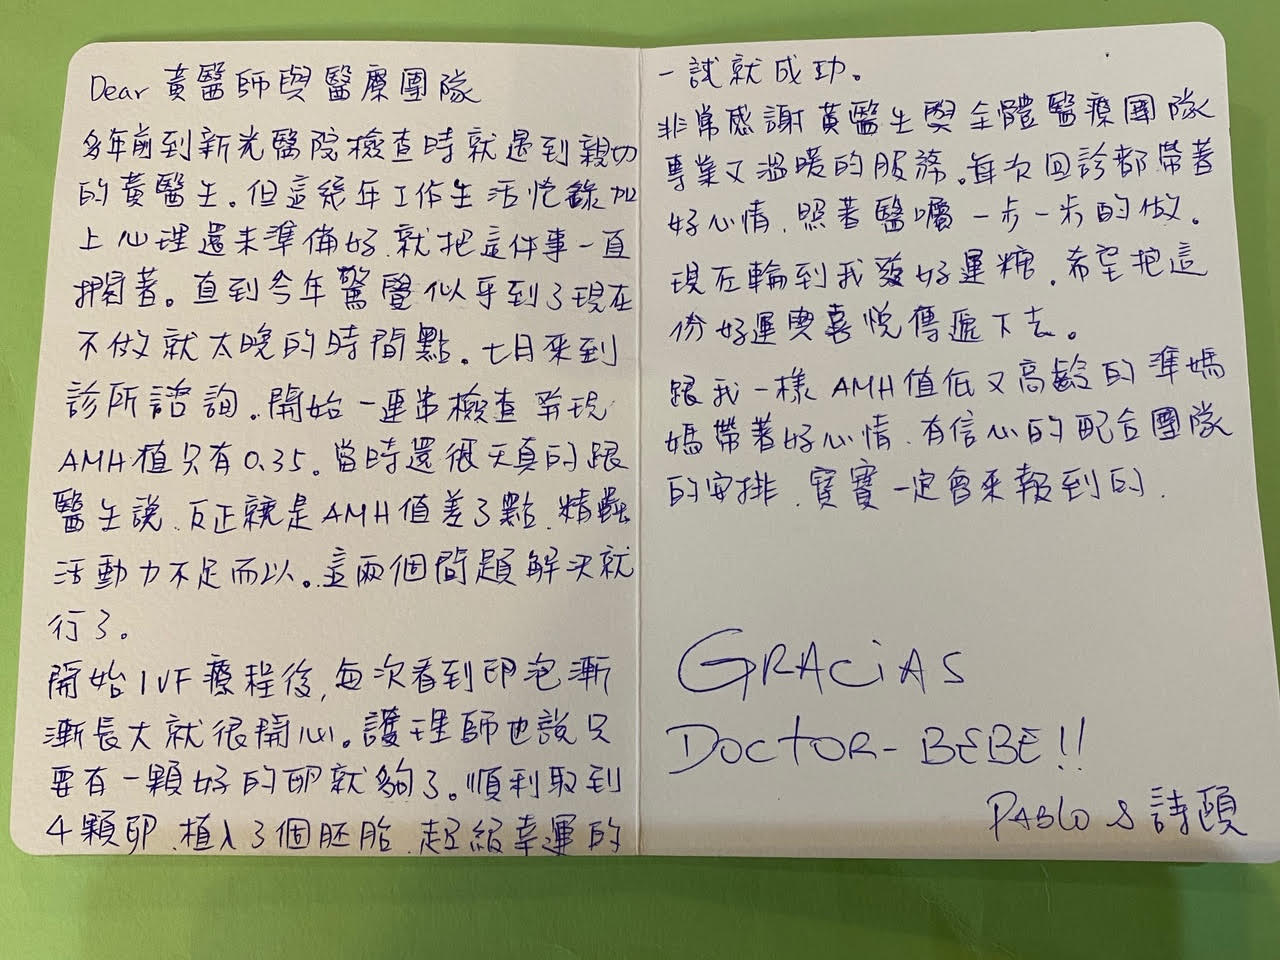 Dear 黃醫師與醫療團隊
多年前到新光醫院檢查時就遇到親切
的黃醫生。但這幾年工作生活忙錄加
上心理還未準備好、就把這件事一直
擱著。直到今年驚覺似乎到了現在
不做就太晚的時間點。七月來到
診所諮詢。開始一連串檢查發現
AMH值只有0.35。當時還很天真的跟
醫生說、反正就是AMH值差了點、精蟲
活動力不足而以。這兩個問題解決就
行了。
開始IVF療程後,每次看到卵泡漸
漸長大就很開心。護理師也說只
要有一顆好的卵就夠了。順利取到
4顆卵、植入3個胚胎、超級幸運的
一試就成功。
非常感謝黃醫生與全體醫療團隊
專業又溫暖的服務。每次回診都帶著
好心情、照著醫囑一步一步的做。
現在輪到我發好運糖、希望把這
份好運與喜悅傳遞下去。
跟我一樣AMH值低又高齡的準媽
媽帶著好心情、有信心的配合團隊
的安排、寶寶一定會來報到的.
GRACiAS
DOCTOR-BEBE!!
PABlO & 詩頤